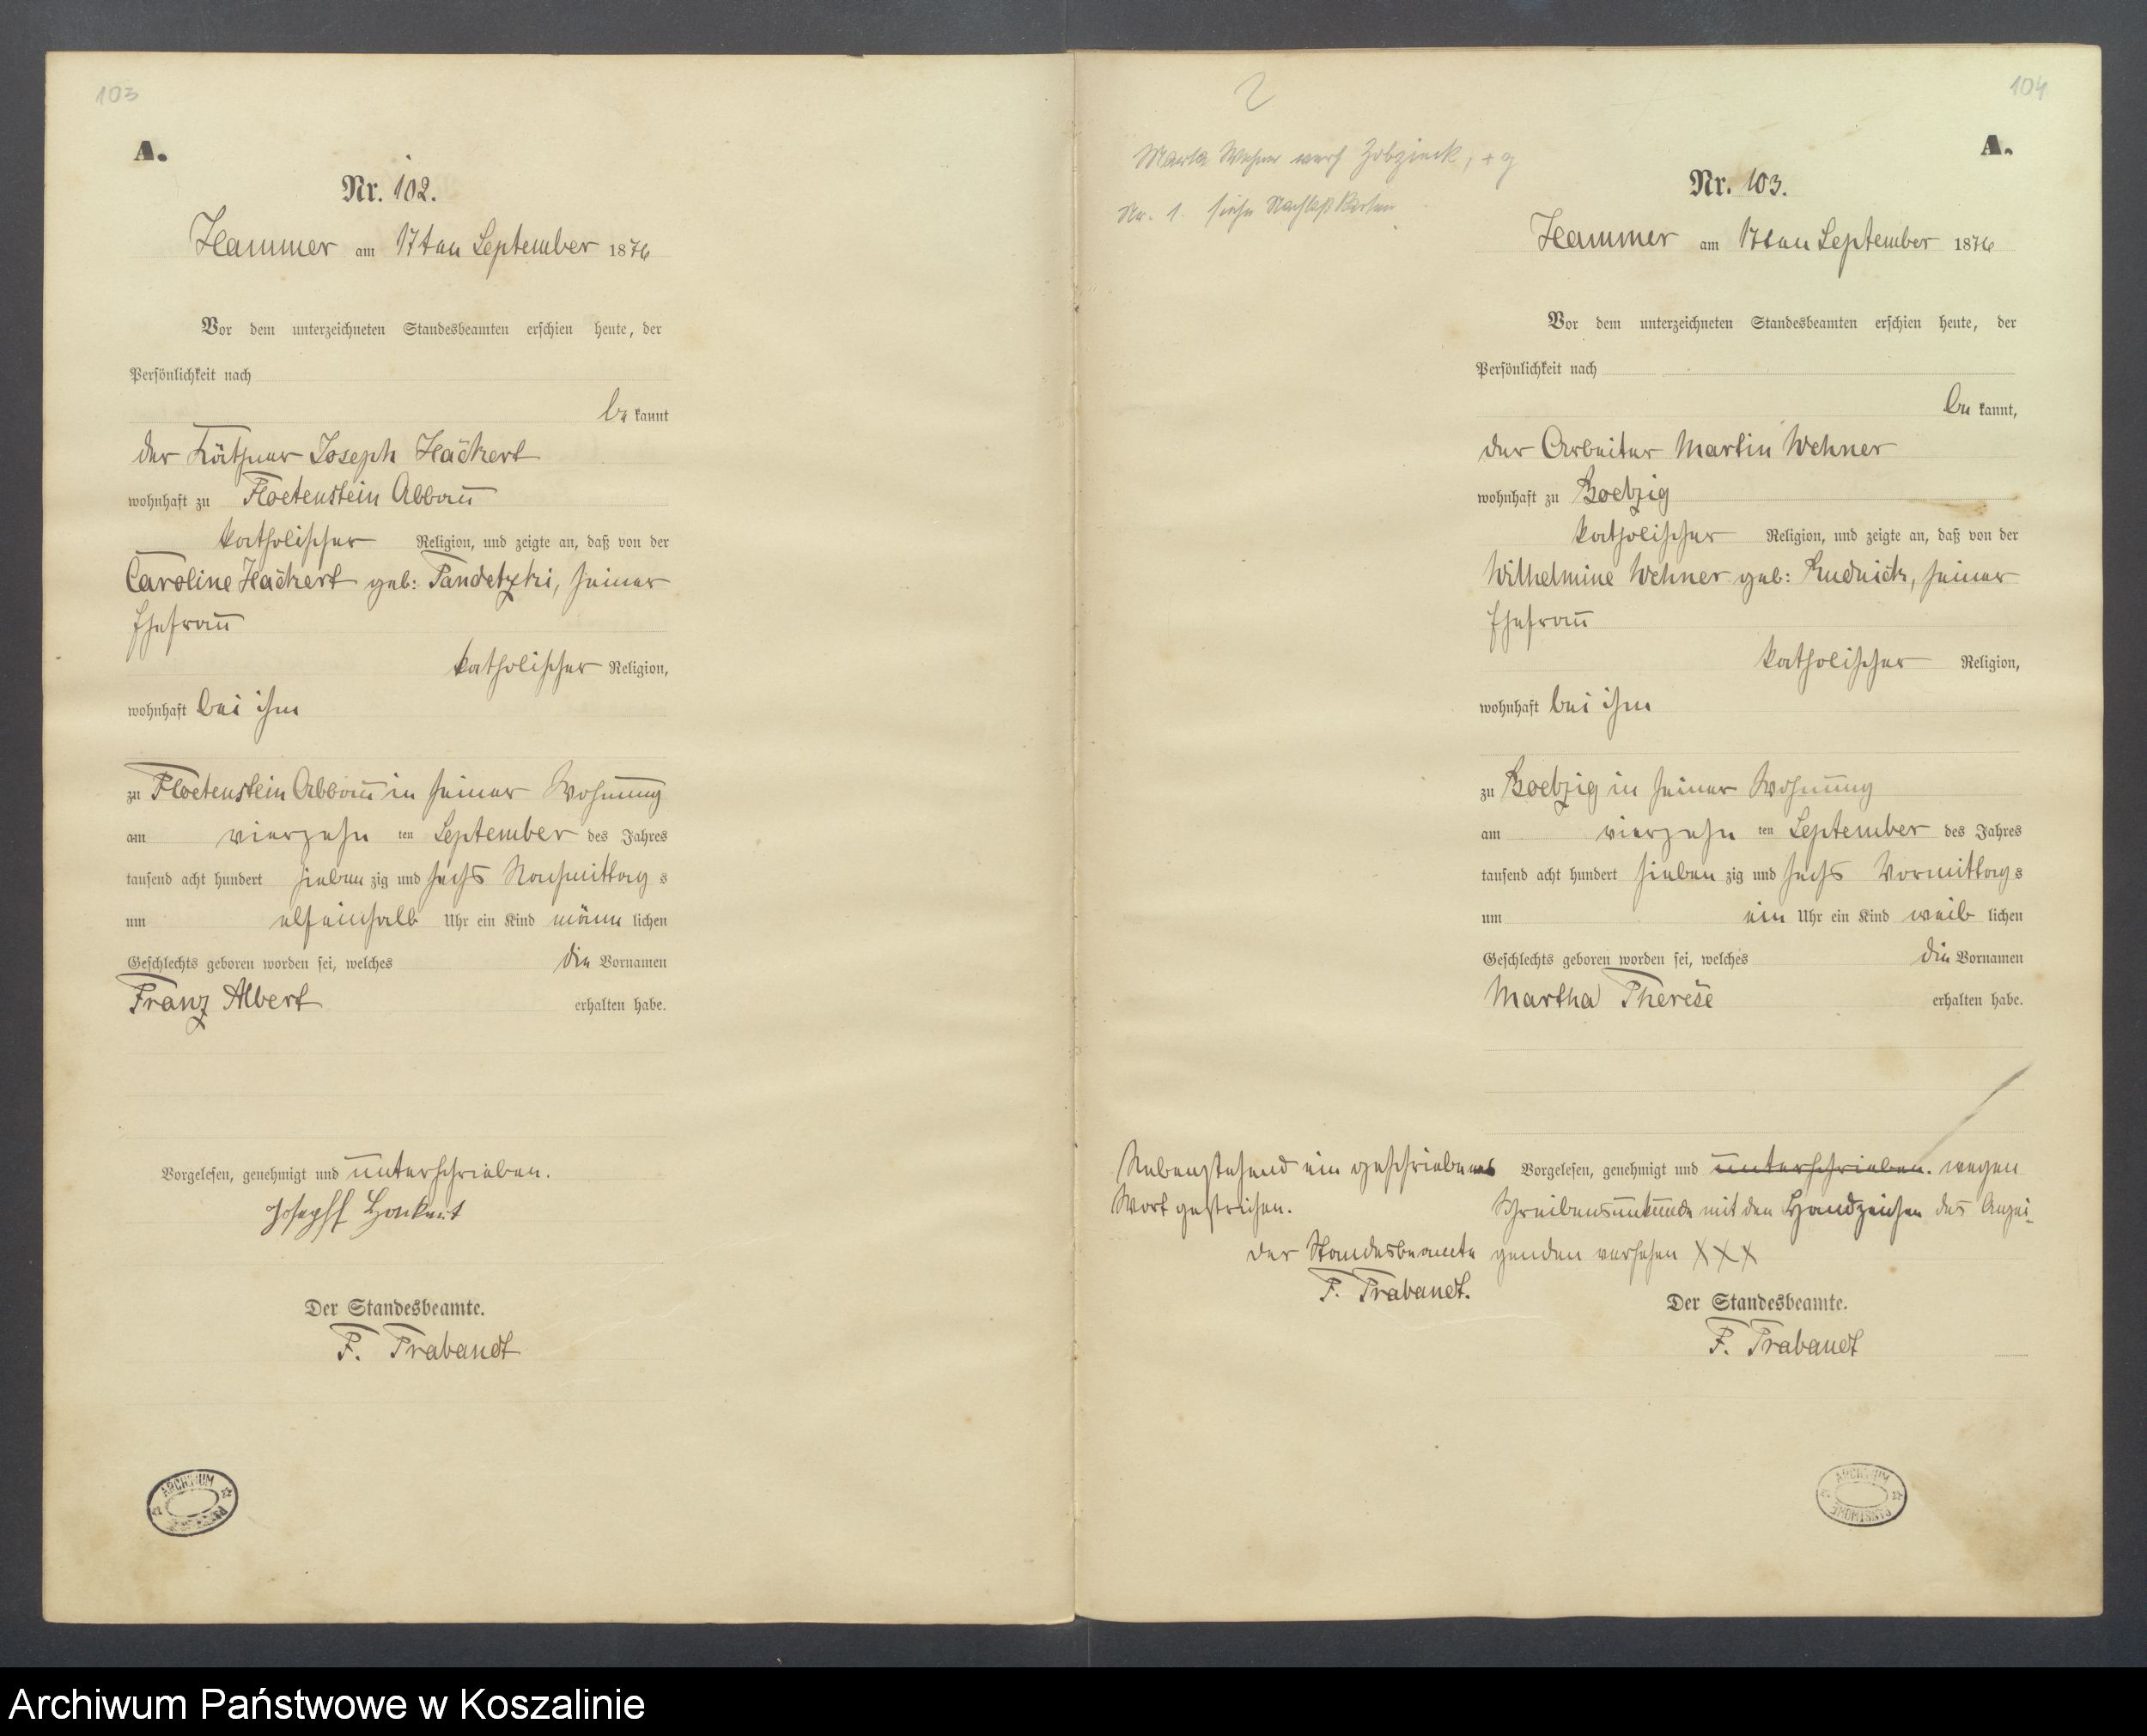 103
A.
Nr. 102.
Hammer am 17ten September 1876
Vor dem unterzeichneten Standesbeamten erschien heute, der
Persönlichkeit nach
be kannt
der Käthner Joseph Hackert
wohnhaft zu Floetenstein Abbau
katholischer Religion, und zeigte an, daß von der
Caroline Hackert geb: Pandetzki, seiner
Ehefrau
katholischer Religion,
wohnhaft bei ihm
zu Floetenstein Abbau in seiner Wohnung
am vierzehn ten September des Jahres
tausend acht hundert sieben zig und sechs Nachmittag s
um elfeinhalb Uhr ein Kind männ lichen
Geschlechts geboren worden sei, welches die Vornamen
Franz Albert erhalten habe.
Vorgelesen, genehmigt und unterschrieben.
Joseph Hackert
Der Standesbeamte.
F. Trabandt
ARCHIWUM
104
2
A.
Marta Wehner
Nr. 1. siehe
Nr. 103.
Hammer am 17ten September 1876
Vor dem unterzeichneten Standesbeamten erschien heute, der
Persönlichkeit nach
be kannt,
der Arbeiter Martin Wehner
wohnhaft zu Boetzig
katholischer Religion, und zeigte an, daß von der
Wilhelmine Wehner geb: Rudnick, seiner
Ehefrau
katholischer Religion,
wohnhaft bei ihm
zu Boetzig in seiner Wohnung
am vierzehn ten September des Jahres
tausend acht hundert sieben zig und sechs Vormittag s
um ein Uhr ein Kind weib lichen
Geschlechts geboren worden sei, welches die Vornamen
Martha Therese erhalten habe.
Vorgelesen, genehmigt und unterschrieben. wegen
Schreibensunkunde mit den Handzeichen des Anzei-
genden versehen XXX
Nebenstehend ein geschriebenes
Wort gestrichen.
Der Standesbeamte
F. Trabandt.
Der Standesbeamte.
F. Trabandt
ARCHIWUM PAŃSTWOWE
Archiwum Państwowe w Koszalinie